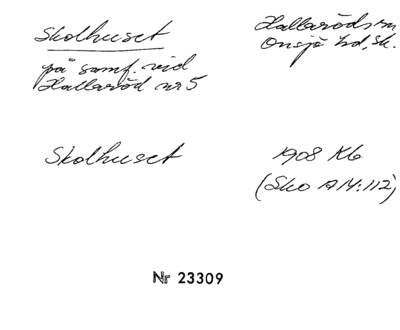 Skolhuset
Hallaröds sn
Onsjö hd, Sk.
på samf. vid
Hallaröd nr 5
Skolhuset
1908 Kb
(Sko A14:112)
Nr 23309